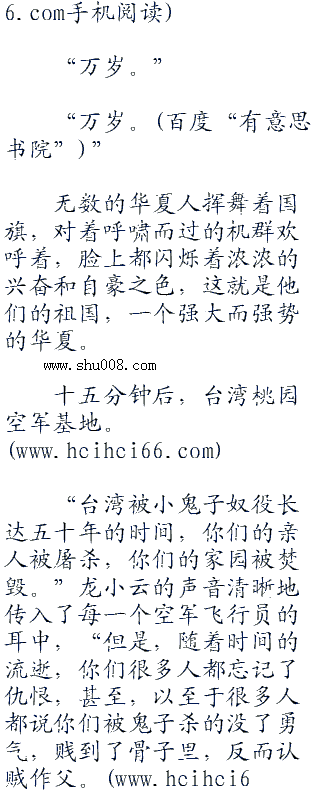 6.com手机阅读)
“万岁。”
“万岁。(百度“有意思
书院”)”
无数的华夏人挥舞着国
旗，对着呼啸而过的机群欢
呼着，脸上都闪烁着浓浓的
兴奋和自豪之色，这就是他
们的祖国，一个强大而强势
的华夏。
www.shu008.com
十五分钟后，台湾桃园
空军基地。
(www.hcihci66.com)
“台湾被小鬼子奴役长
达五十年的时间，你们的亲
人被屠杀，你们的家园被焚
毁。”龙小云的声音清晰地
传入了每一个空军飞行员的
耳中，“但是，随着时间的
流逝，你们很多人都忘记了
仇恨，甚至，以至于很多人
都说你们被鬼子杀的没了勇
气，贱到了骨子里，反而认
贼作父。(www.hcihci6